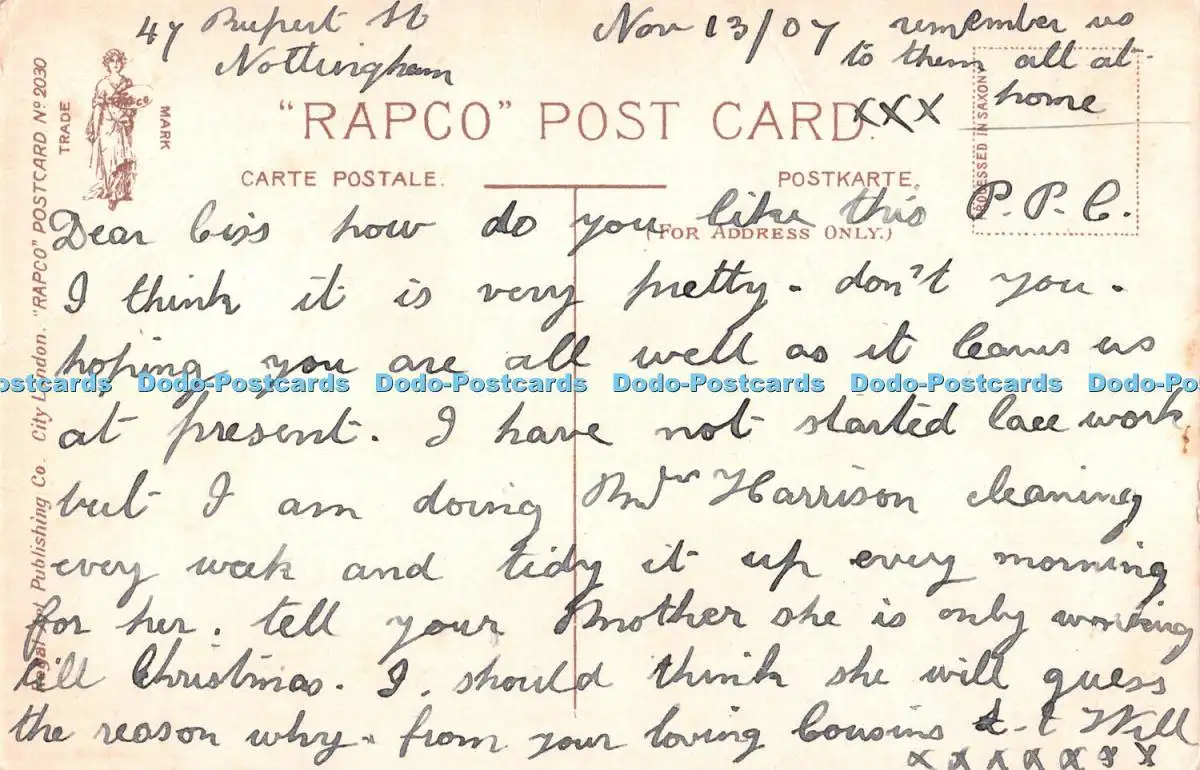 47 Rupert St
Nottingham
Nov 13/07
remember us
to them all at
home
XXX
"RAPCO" POST CARD.
CARTE POSTALE.
POSTKARTE.
(FOR ADDRESS ONLY.)
TRADE MARK
PROCESSED IN SAXONY
Regal Art Publishing Co. City London. "RAPCO" POSTCARD Nº 2030
Dear Ciss how do you like this P.P.C.
I think it is very pretty - don't you -
hoping you are all well as it leaves us
Dodo-Postcards Dodo-Postcards Dodo-Postcards Dodo-Postcards
at present. I have not started lace work
but I am doing Mrs Harrison cleaning
every week and tidy it up every morning
for her. tell your Mother she is only working
till Christmas. I. should think she will guess
the reason why. from your loving Cousins & Will
x x x x x x x